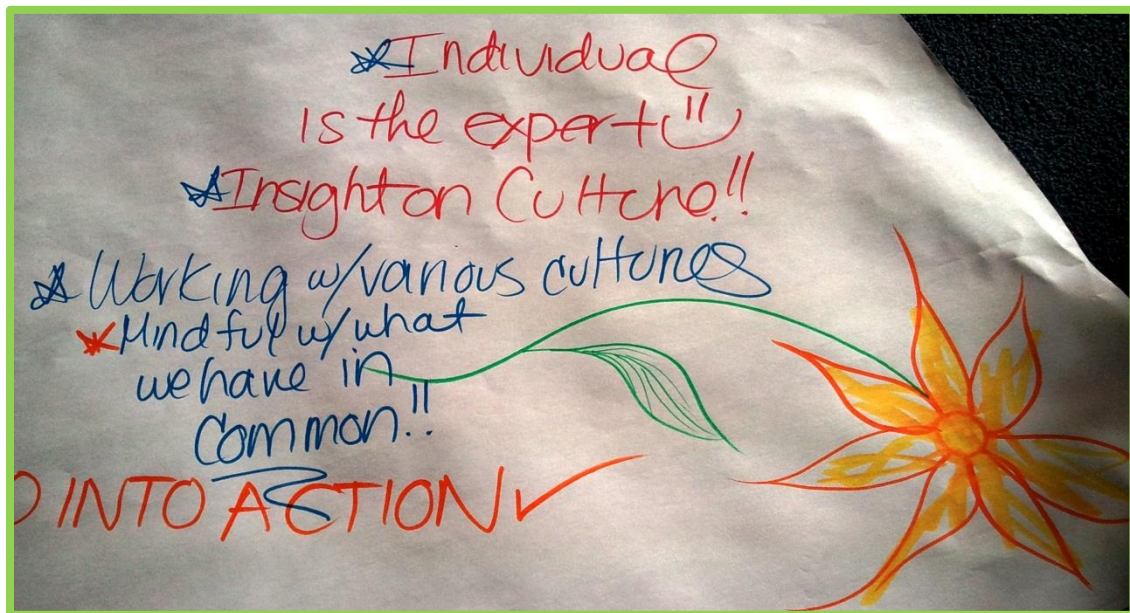 Individual
is the expert
Insight on Culture!!
Working w/various cultures
Mindful w/ what
we have in
common!!
INTO ACTION